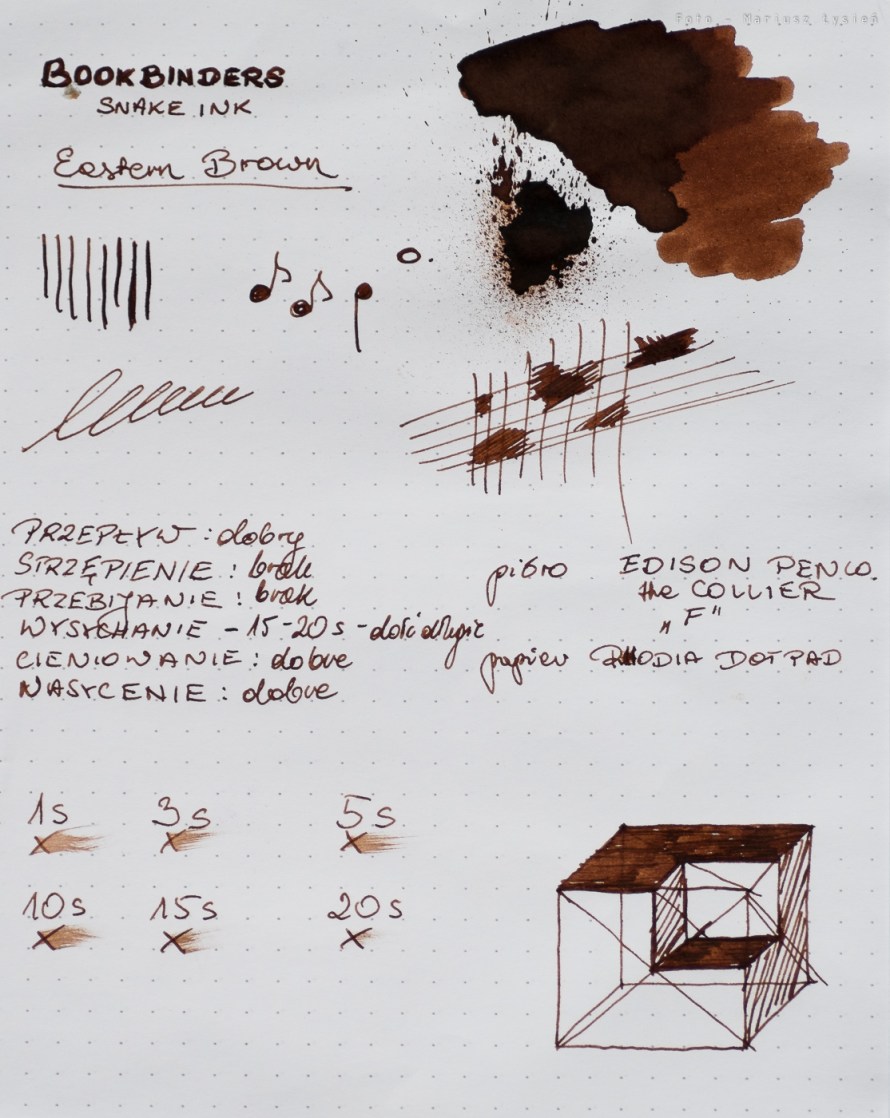 Foto - Mariusz Łyziń
BOOKBINDERS
SNAKE INK
Eastern Brown
PRZEPŁYW : dobry
STRZĘPIENIE : brak
PRZEBIJANIE : brak
WYSYCHANIE - 15-20 s - dość długie
CIENIOWANIE : dobre
NASYCENIE : dobre
pióro EDISON PEN CO.
the COLLIER
„F”
papier RHODIA DOTPAD
1s 3s 5s
10s 15s 20s